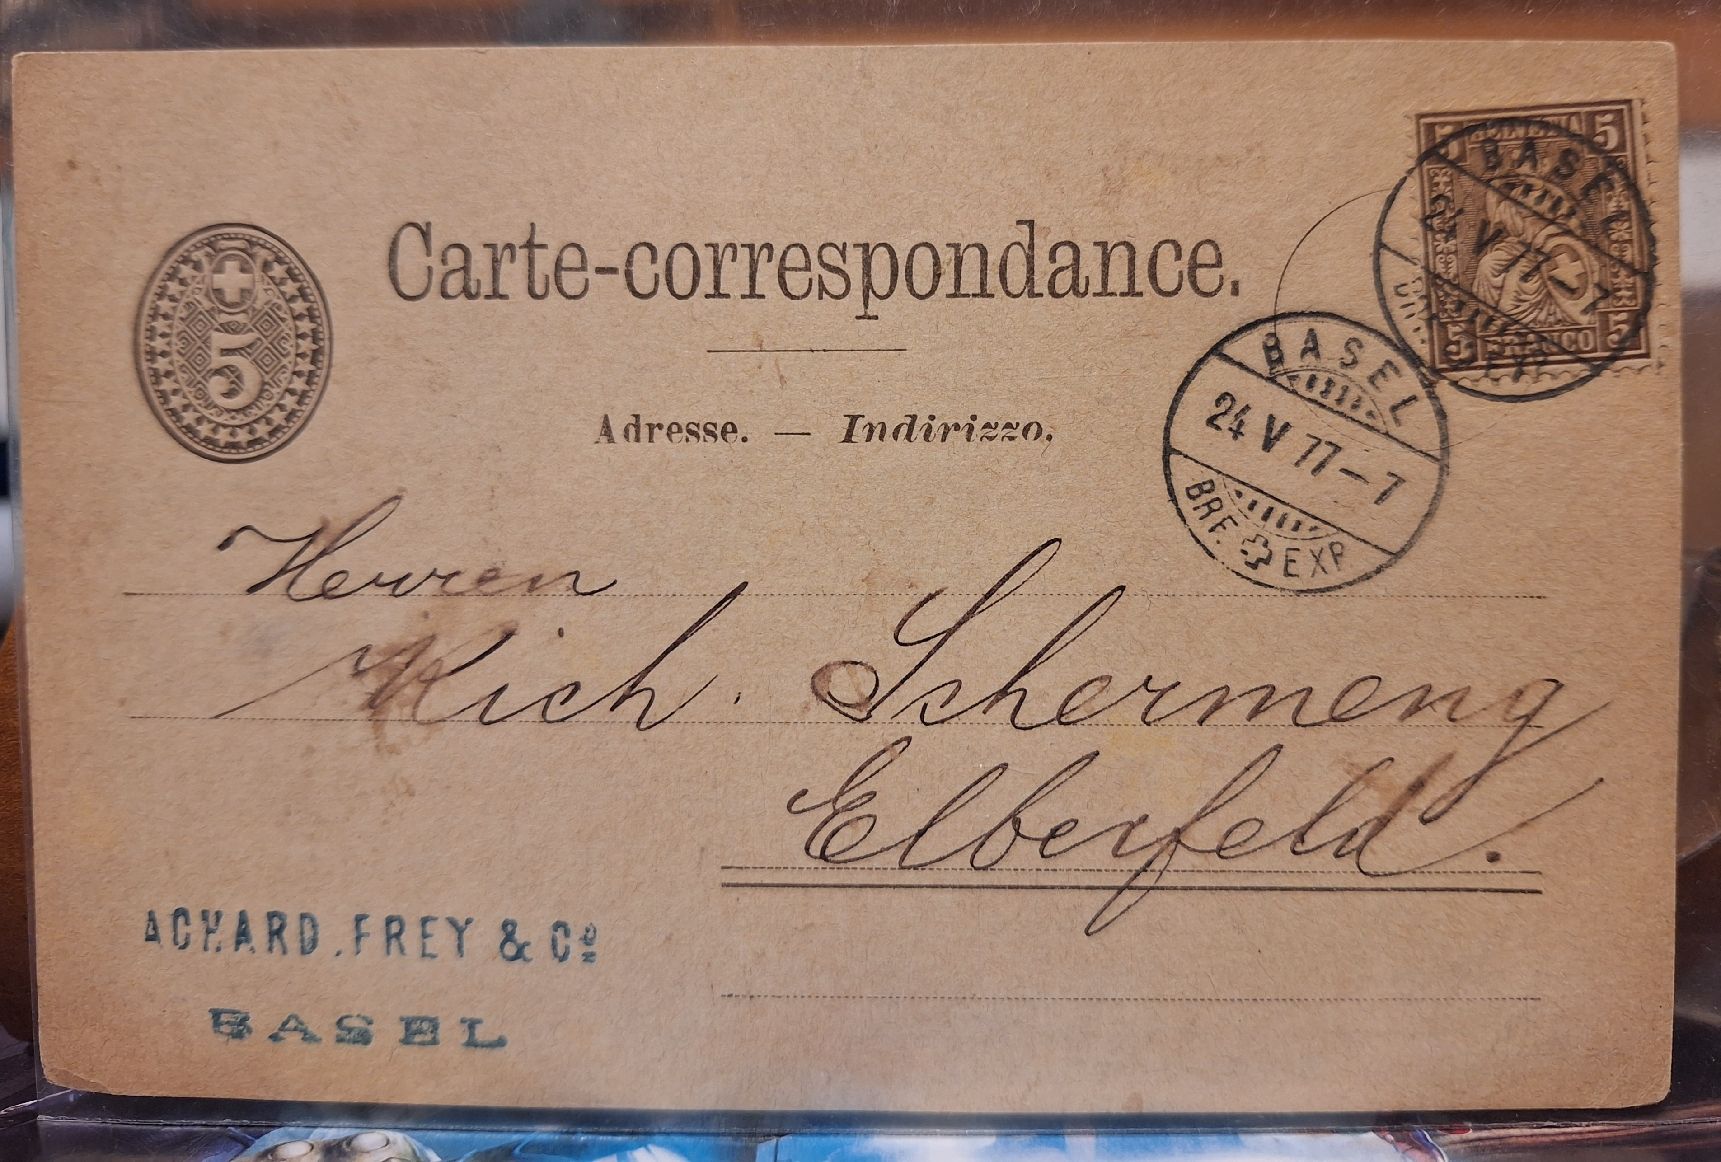 Carte-correspondance.
5
5 HELVETIA 5
5 FRANCO 5
BASEL
V 77-7
BASEL
24 V 77-7
BRF. EXP
Adresse. — Indirizzo.
Herren
Rich. Schermeng
Elberfeld.
ACHARD. FREY & Co
BASEL